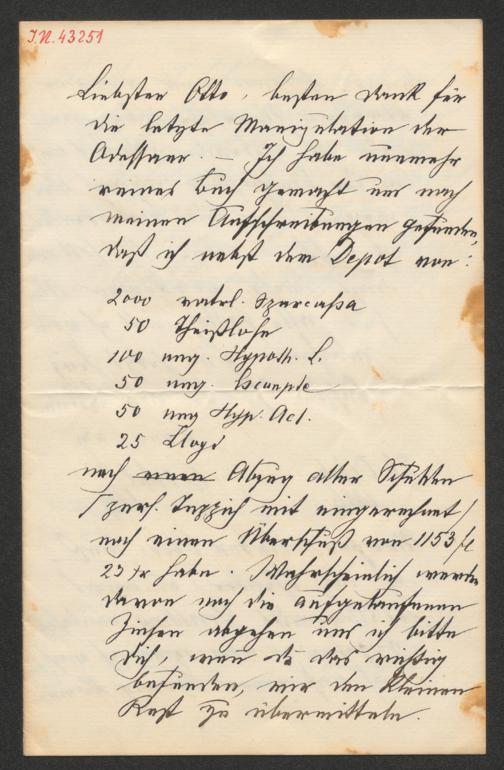 I.N. 43251
Liebster Otto, besten Dank für
die letzte Manipulation der
Odessaer. — Ich habe nunmehr
reines Buch gemacht und nach
meinen Aufschreibungen gefunden,
daß ich nebst dem Depot von:
2000 vatrl. Sparcassa
50 Theißlose
100 ung. Hypoth. L.
50 ung. Escompte
50 ung Hyp. Act.
25 Lloyd
nach Abzug aller Schulden
/ pers. Teppich mit eingerechnet /
noch einen Überschuß von 1153 fl
23 kr habe. Wahrscheinlich werden
davon noch die aufgelaufenen
Zinsen abgehen und ich bitte
Dich, wenn du das richtig
befunden, mir den kleinen
Rest zu übermitteln.